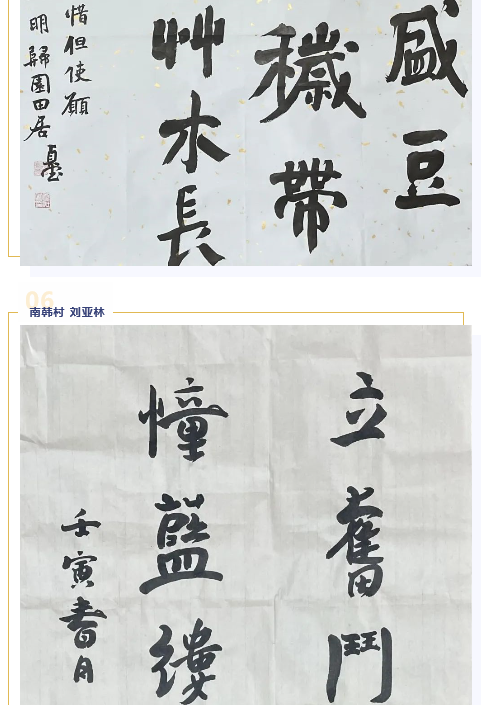 盛豆
穢帶
艸木長
惜但使願
明歸園田居
06
南韩村 刘亚林
立奮鬥
憧藍縷
壬寅書月